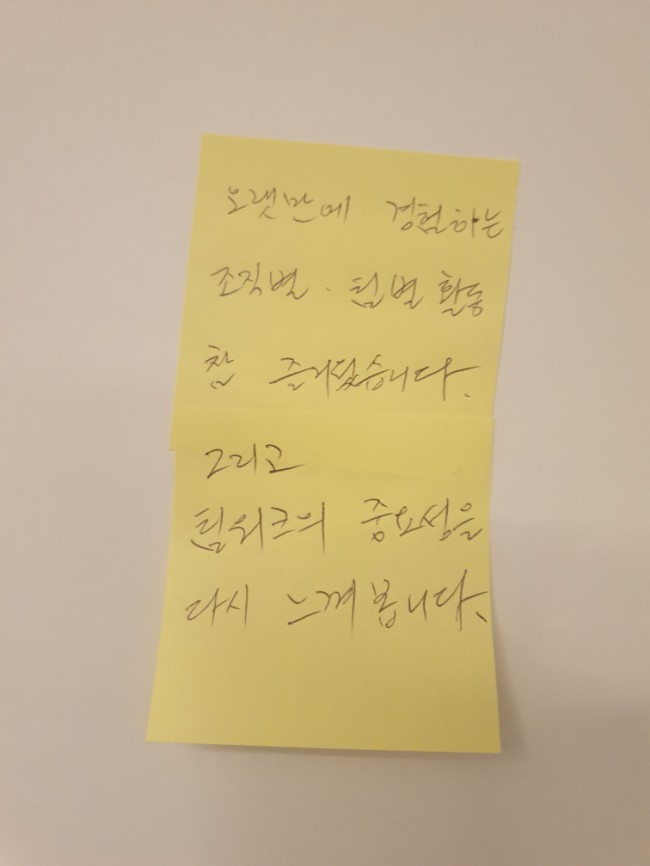 오랫만에 경험하는
조직별 · 팀별 활동
참 즐거웠습니다.
그리고
팀워크의 중요성을
다시 느껴봅니다.